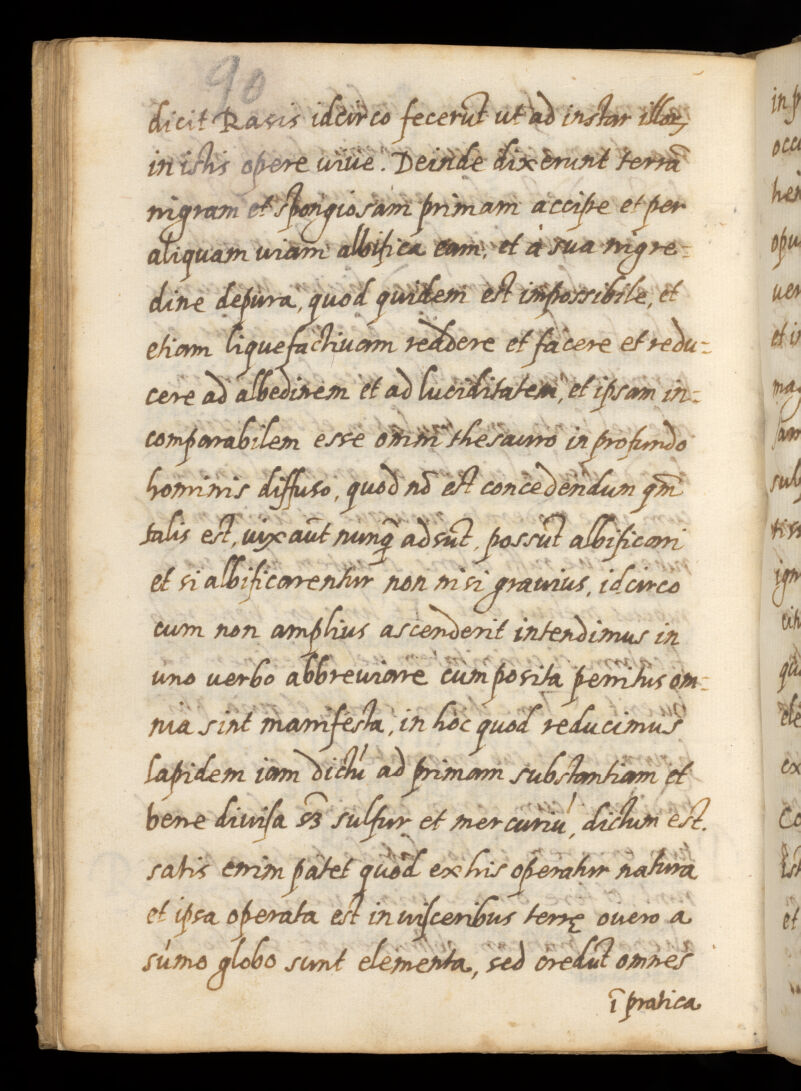 90
dicit Rasis idcirco fecerūt ut ad instar illaꝝ
in istis opere uiue. Deinde dixerunt terrā
nigram et spongiosam primam accipe et per
aliquam uiam albifica eam, et à sua nigre=
dine depura, quod quidem est impossibile, et
etiam liquefactiuam reddere et facere et redu=
cere ad albedinem et ad luciditatem, et ipsam in=
comparabilem esse omni thesauro in profundo
hominis diffuso, quod nō est concedendum qm̄
talis est, uix aūt nunq̄ adsūt, possūt albificari
et si albificarentur non nisi grauius, idcirco
cum non amplius ascenderit intendimus in
uno uerbo abbreuiare cum posita penitus om=
nia sint manifesta, in hoc quod reducimus
lapidem iam dictū ad primam substantiam et
bene diuisa sꝫ sulfur et mercuriū, dictum est.
satis enim patet quod ex his operatur natura
et ipsa operata est in uisceribus terrę ouero a
sūmo globo sunt elementa, sed credūt omnes
ī pratica